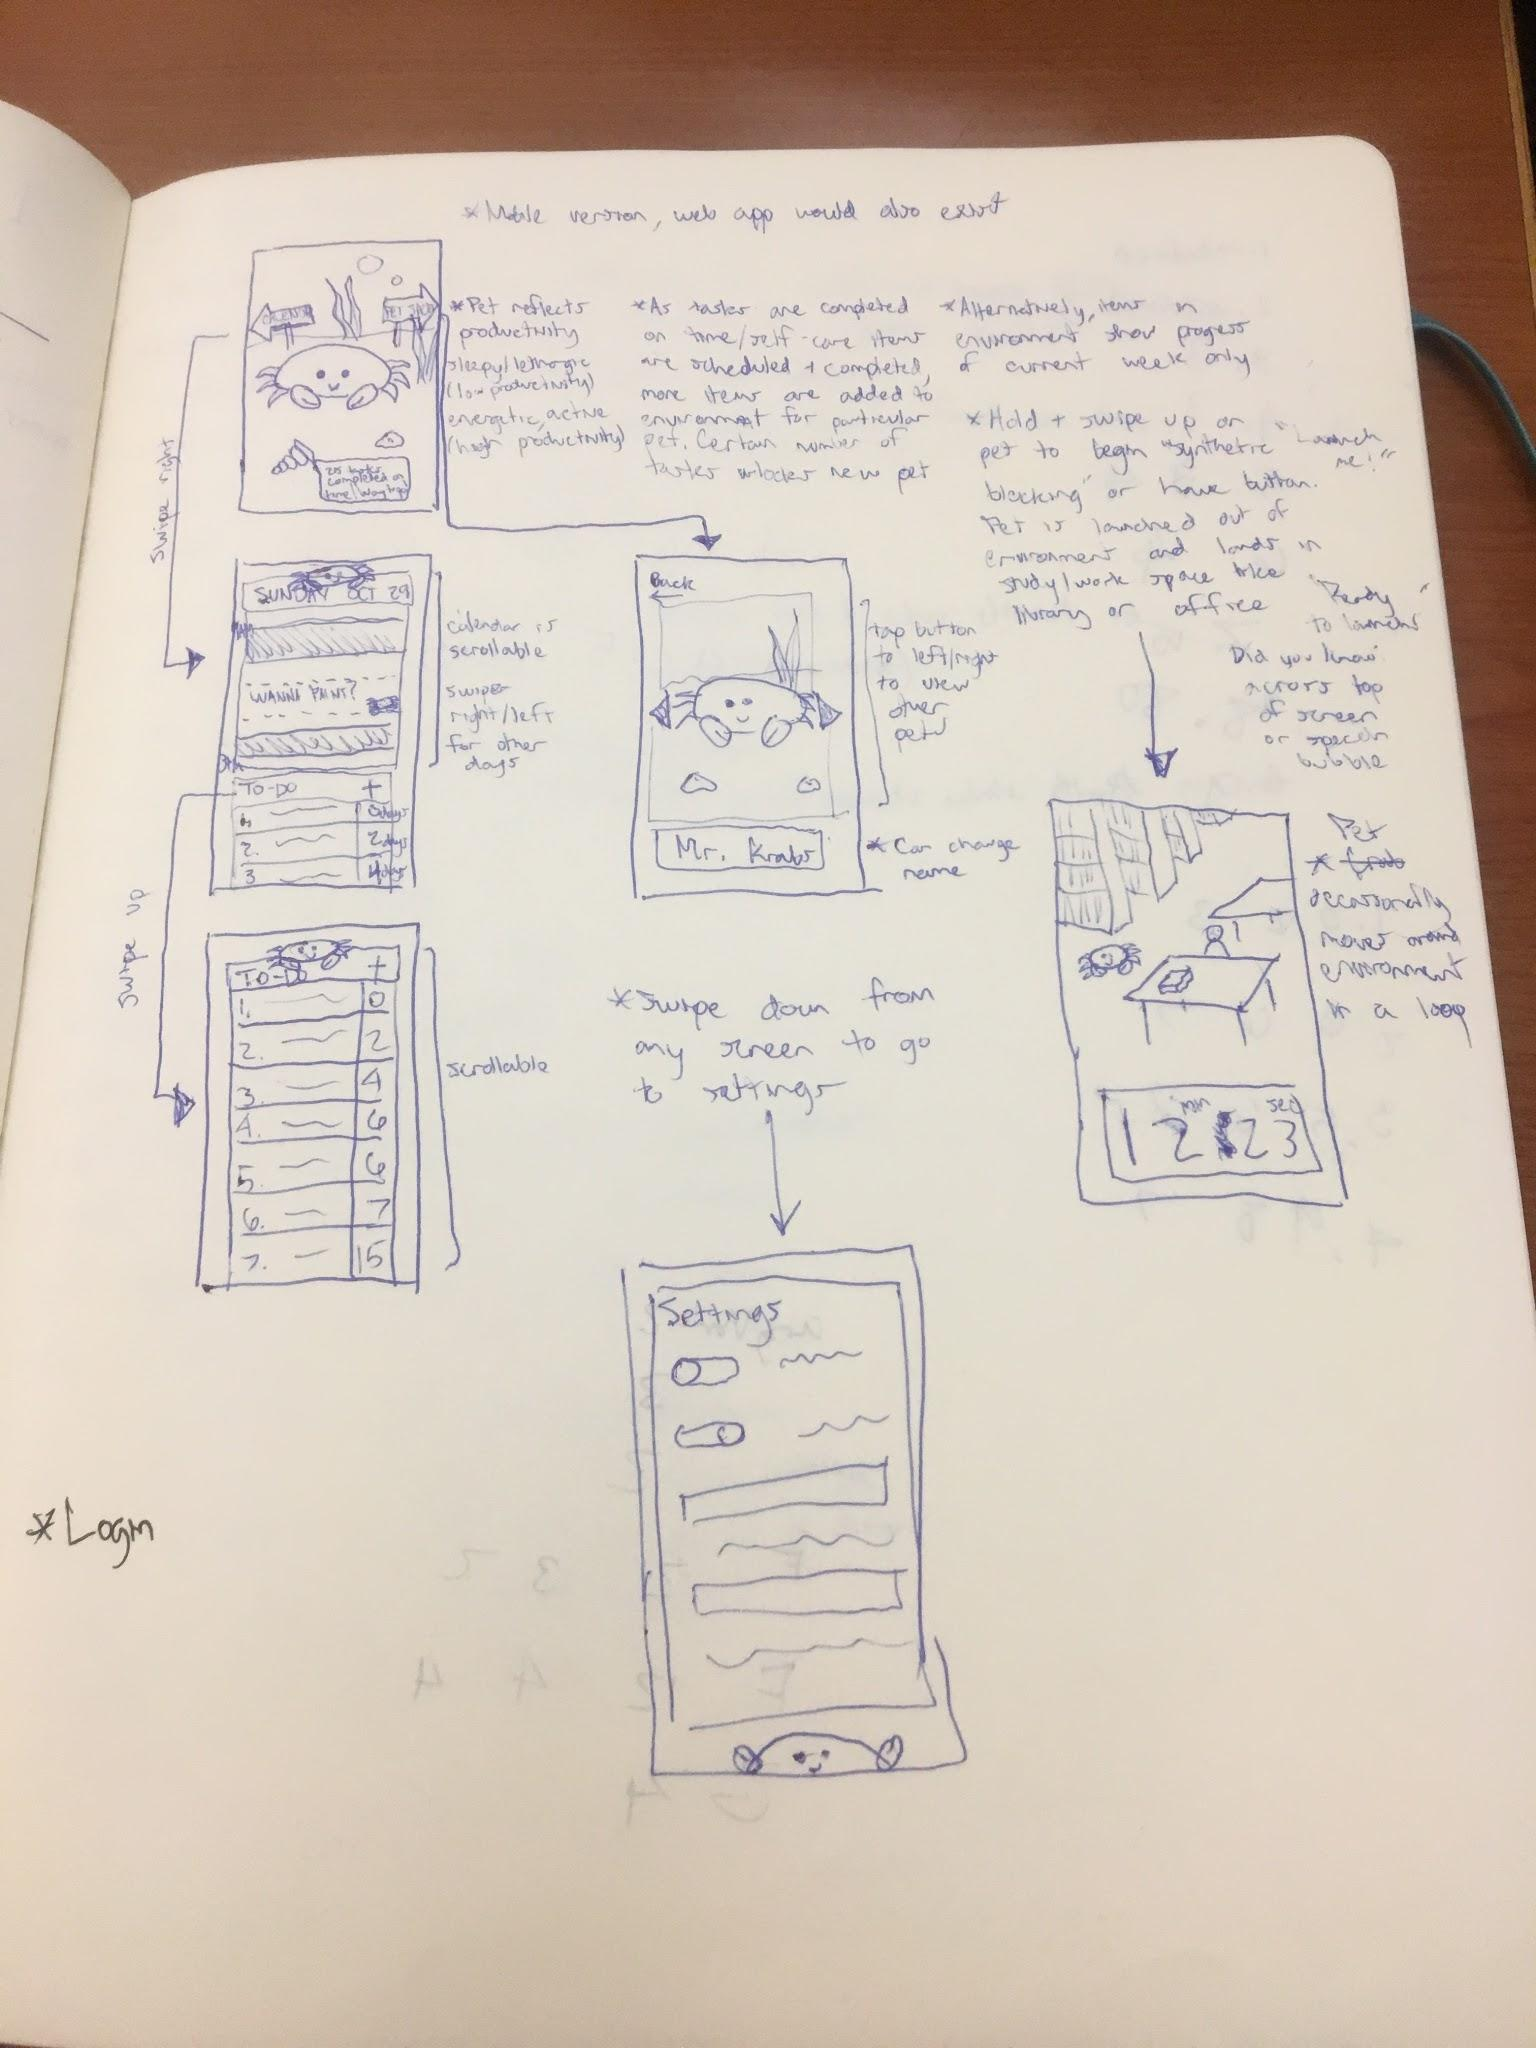 *Mobile version, web app would also exist
*Pet reflects
productivity
sleepy/lethargic
(low productivity)
energetic, active
(high productivity)
*As tasks are completed
on time/self-care items
are scheduled + completed,
more items are added to
environment for particular
pet. Certain number of
tasks unlocks new pet
*Alternatively, items in
environment show progress
of current week only
*Hold + swipe up on
pet to begin "synthetic
blocking" or have button.
Pet is launched out of
environment and lands in
study/work space like
library or office
"Launch
me!"
"Ready
to launch"
Did you know
across top
of screen
or speech
bubble
CALENDAR
PET
25 tasks
completed on
time
swipe right
SUNDAY OCT 29
WANNA PAINT?
TO-DO +
1. 0days
2. 2days
3 4days
calendar is
scrollable
swipe
right/left
for other
days
swipe up
Back
Mr. Krabs
tap button
to left/right
to view
other
pets
*Can change
name
TO-DO +
1. 0
2. 2
3. 4
4. 6
5. 6
6. 7
7. 15
scrollable
*Swipe down from
any screen to go
to settings
min sec
12 23
Pet
*
occasionally
moves around
environment
in a loop
Settings
*Login